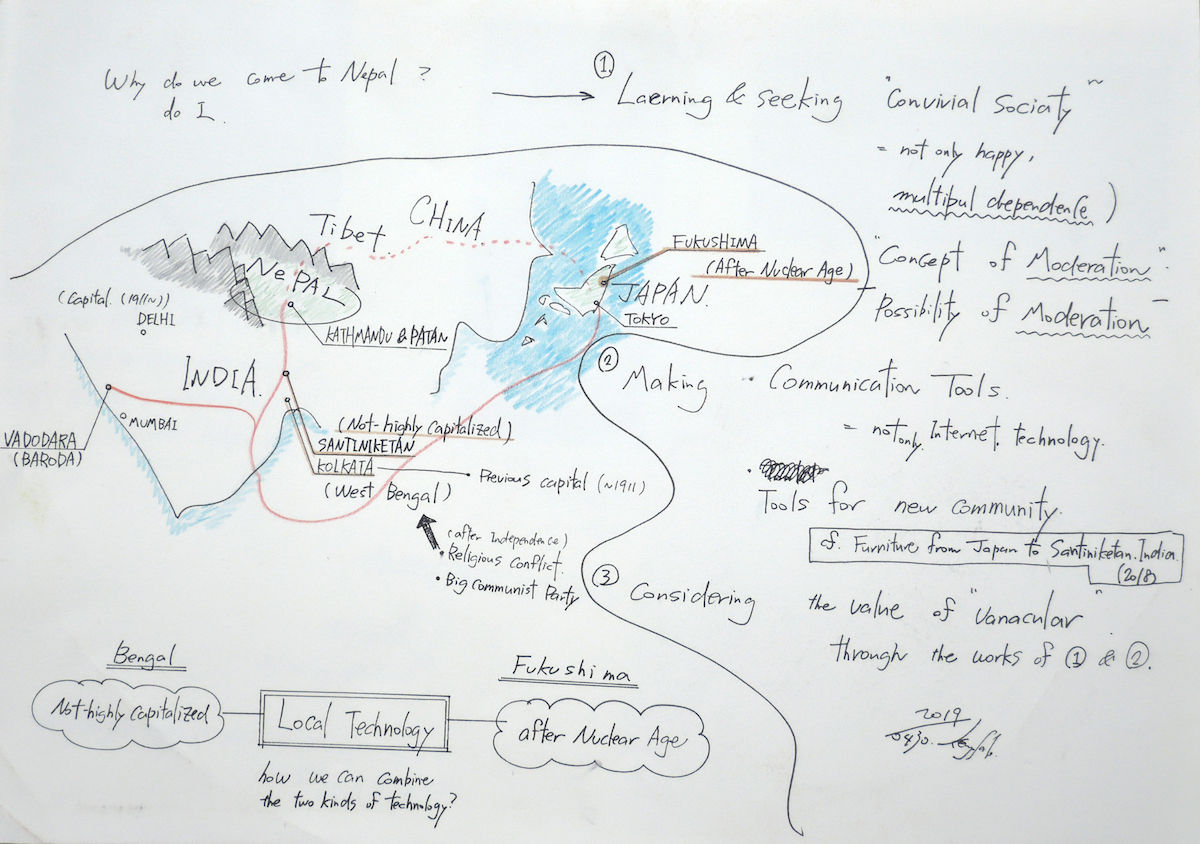 Why do we come to Nepal ?
do I.
① Laerning & seeking
"Convivial Sociaty"
= not only happy,
multipul dependence )
"Concept of Moderation"
Possibility of Moderation
Tibet
CHINA
NEPAL
FUKUSHIMA
(After Nuclear Age)
JAPAN.
TOKYO
(Capital (1911~))
DELHI
KATHMANDU & PATAN
INDIA.
MUMBAI
VADODARA
(BARODA)
(Not-highly Capitalized)
SANTINIKETAN
KOLKATA
Previous capital (~1911)
(West Bengal)
(after Independence)
• Religious conflict.
• Big communist Party
② Making
• Communication Tools.
= not only Internet, technology.
•
Tools for new community.
cf. Furniture from Japan to Santiniketan. India.
(2018)
③ Considering
the value of "Vanacular"
through the works of ① & ②.
Bengal
Not-highly capitalized
Local Technology
how we can combine
the two kinds of technology?
Fukushima
after Nuclear Age
2019
0430.